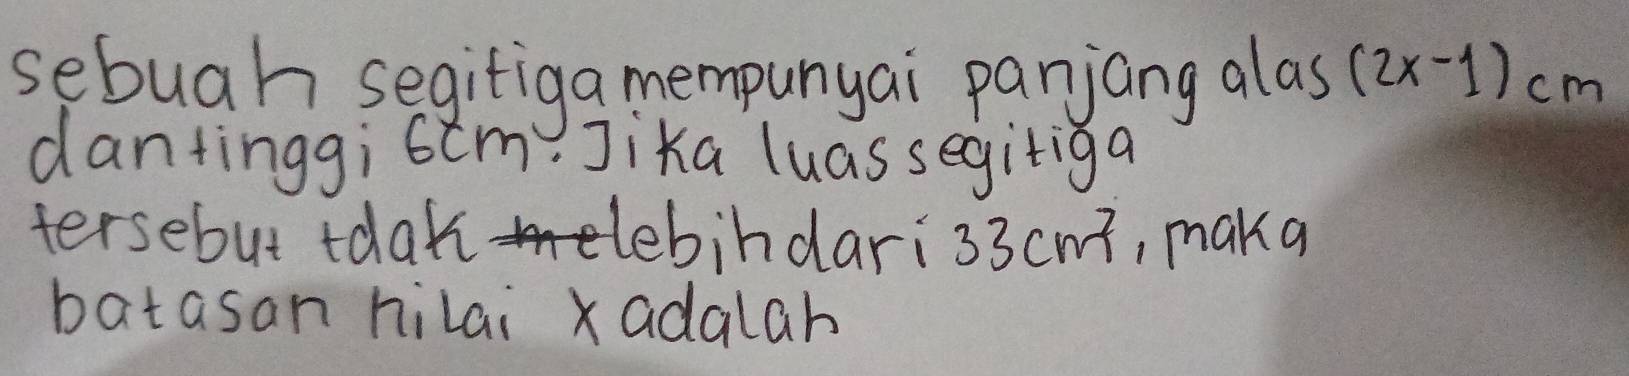 sebuah segitiga mempunyai panjang alas (2x-1) cm
dan tinggi 6cm. Jika luas segitiga
tersebut tdak lebih dari 33cm², maka
batasan nilai x adalah